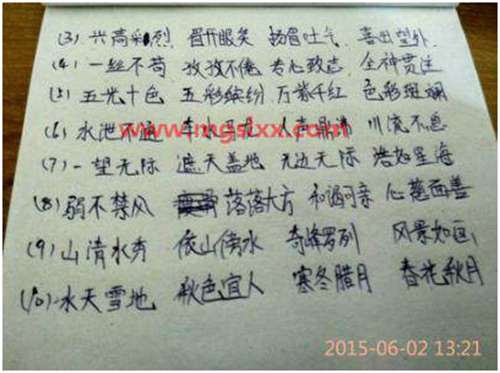 (3) 兴高采烈 眉开眼笑 扬眉吐气 喜出望外
(4) 一丝不苟 孜孜不倦 专心致志 全神贯注
(5) 五光十色 五彩缤纷 万紫千红 色彩斑斓
(6) 水泄不通 人声鼎沸 川流不息
www.mgslxx.com
(7) 一望无际 遮天盖地 无边无际 浩如星海
(8) 弱不禁风 落落大方 和谒可亲 心慈面善
(9) 山清水秀 依山傍水 奇峰罗列 风景如画
(10) 水天雪地 秋色宜人 寒冬腊月 春花秋月
2015-06-02 13:21